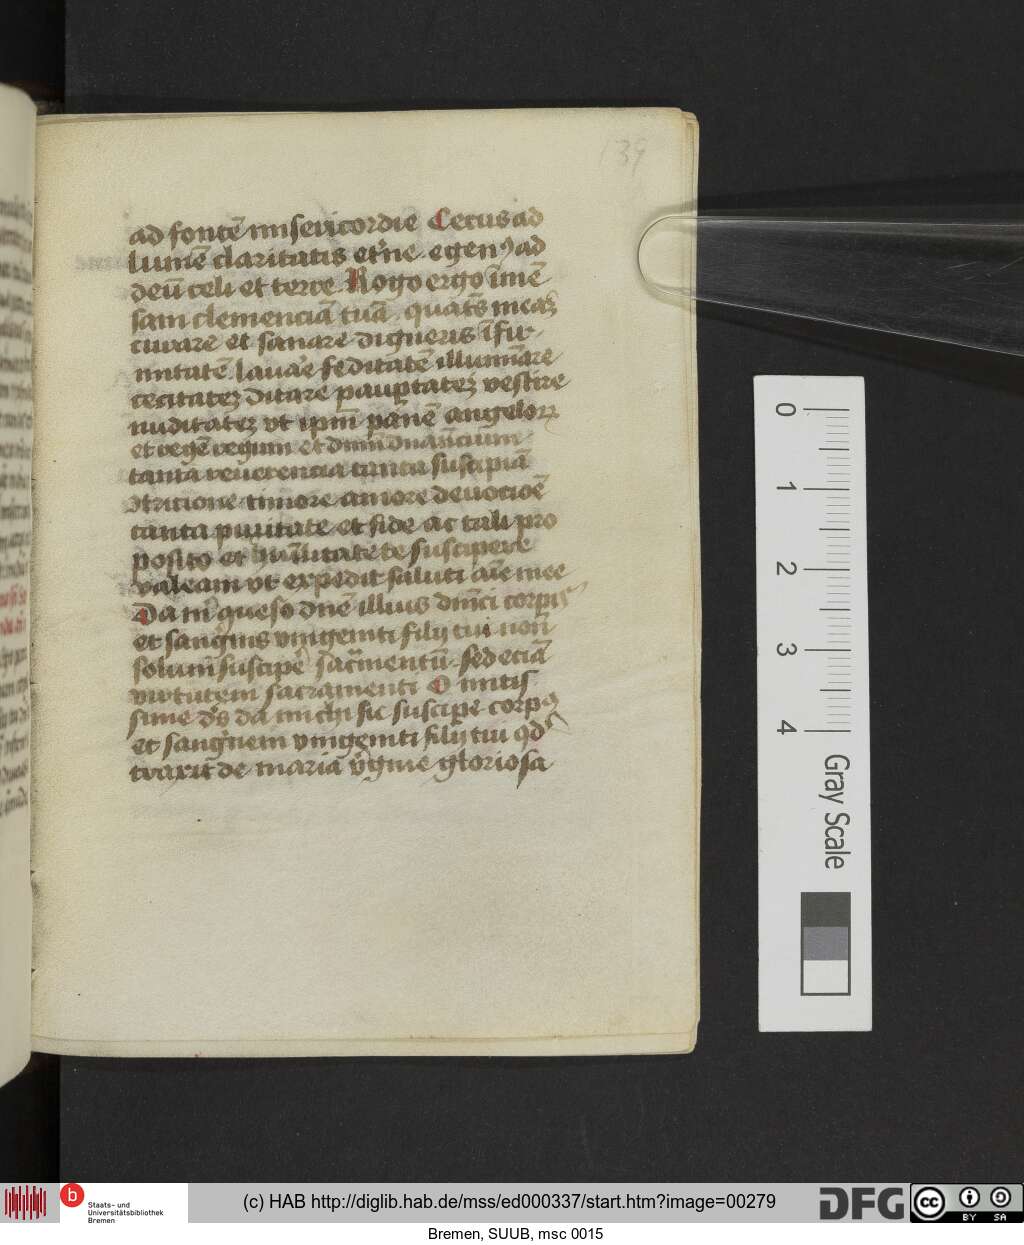 139
ad fontē misericordie Cecus ad
lumē claritatis et'ne egenꝰ ad
deū celi et terre Rogo ergo īmē
sam clemenciā tuā quatꝭ meaꝫ
curare et sanare digneris īfir
mitatē lauar̄e feditatē illumīare
cecitateꝫ ditare paup̱tateꝫ vestire
nuditateꝫ vt ipm̄ panē angeloꝝ
et regē regum et dnm̄ dnanciūm
tanta reuerencia tanta suscipiā
ꝯtricione timore amore deuocioē
tanta puritate et fide ac tali pro
posito et hūilitate te suscipere
valeam vt expedit saluti aīe mee
Da m' queso dnē illius dm̄ci corpis
et sangⁱnis vnigeniti filij tui non̄
solum suscipe' sac̄mentū sed eciā
virtutem sacramenti O mitis
sime ds̄ da michi sic suscipe' corpꝰ
et sangⁱnem vnigeniti filij tui qd'
traxit de maria v'gine gloriosa
0
1
2
3
4
Gray Scale
b
Staats- und
Universitätsbibliothek
Bremen
(c) HAB http://diglib.hab.de/mss/ed000337/start.htm?image=00279
DFG
cc
BY SA
Bremen, SUUB, msc 0015